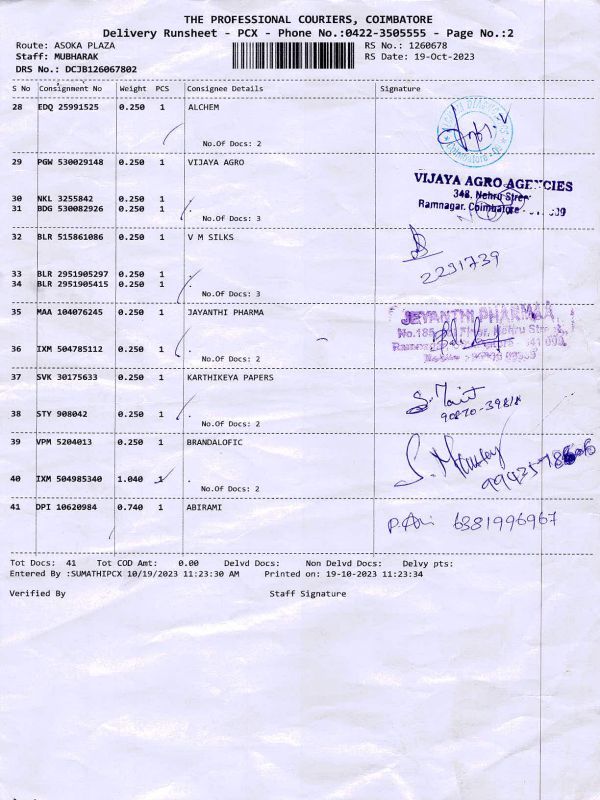 THE PROFESSIONAL COURIERS, COIMBATORE
Delivery Runsheet - PCX - Phone No.:0422-3505555 - Page No.:2
Route: ASOKA PLAZA RS No.: 1260678
Staff: MUBHARAK RS Date: 19-Oct-2023
DRS No.: DCJB126067802
S No Consignment No Weight PCS Consignee Details Signature
28 EDQ 25991525 0.250 1 ALCHEM
No.Of Docs: 2
29 PGW 530029148 0.250 1 VIJAYA AGRO
VIJAYA AGRO AGENCIES
348, Nehru Street
30 NKL 3255842 0.250 1 .
Ramnagar, Coimbatore -
31 BDG 530082926 0.250 1
No.Of Docs: 3
32 BLR 515861086 0.250 1 V M SILKS
2231739
33 BLR 2951905297 0.250 1 .
34 BLR 2951905415 0.250 1
No.Of Docs: 3
35 MAA 104076245 0.250 1 JAYANTHI PHARMA
JEYANTHI PHARMAA
Floor, Nehru
36 IXM 504785112 0.250 1 .
No.Of Docs: 2
37 SVK 30175633 0.250 1 KARTHIKEYA PAPERS
38 STY 908042 0.250 1 .
No.Of Docs: 2
39 VPM 5204013 0.250 1 BRANDALOFIC
40 IXM 504985340 1.040 1 .
No.Of Docs: 2
41 DPI 10620984 0.740 1 ABIRAMI
6381996967
Tot Docs: 41 Tot COD Amt: 0.00 Delvd Docs: Non Delvd Docs: Delvy pts:
Entered By :SUMATHIPCX 10/19/2023 11:23:30 AM Printed on: 19-10-2023 11:23:34
Verified By Staff Signature